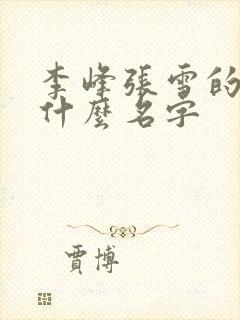 李峰張雪的
什麼名字
賈博